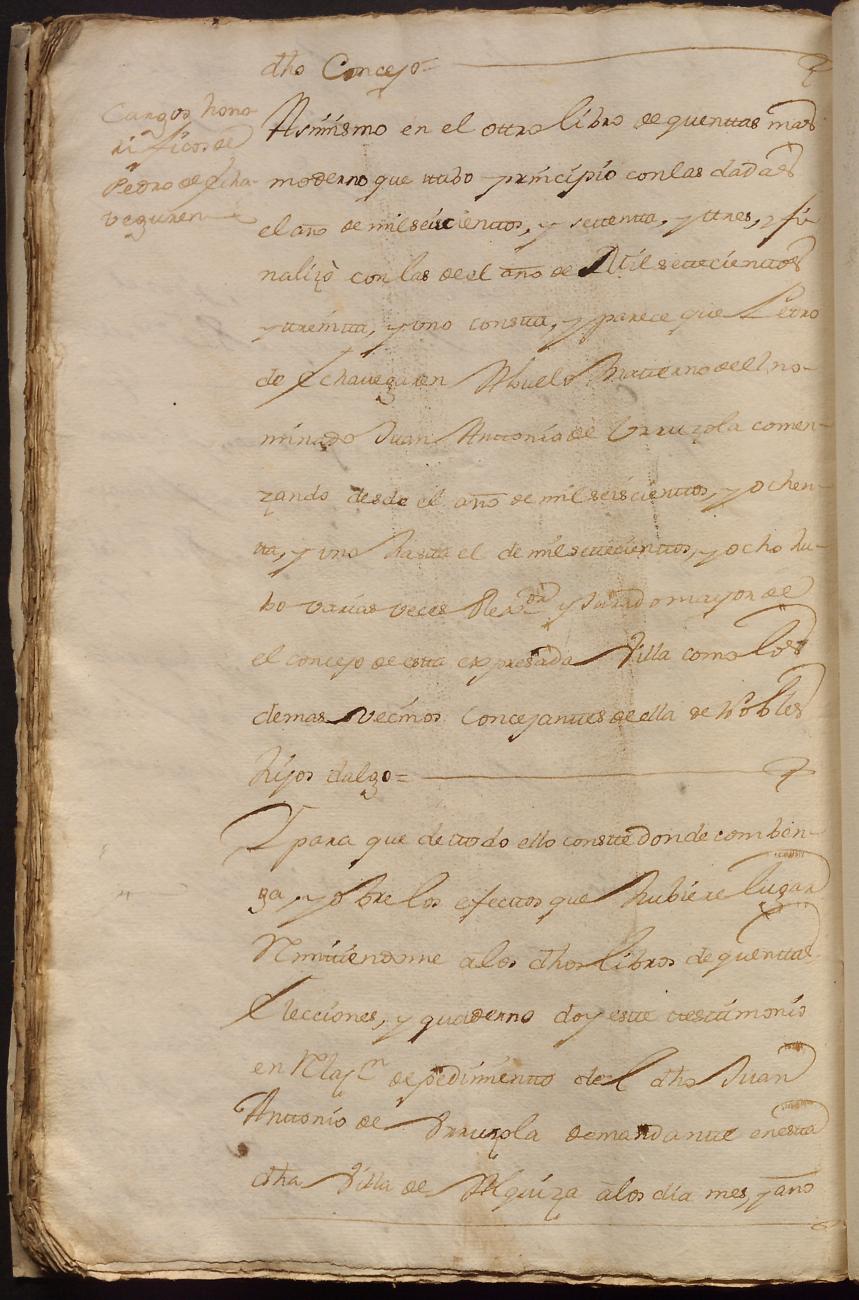 dho Concejo=
Cargos hono
rificos de
Pedro de Echa-
veguren=
Asimismo en el ottro libro de quenttas mas
moderno que ttubo prinçipio con las dadas
el año de mil seisçienttos, y settentta, y ttres, y fi
nalizò con las de el año de Mil settecienttos
y ttreintta, y uno constta, y parece que Pedro
de Echaveguren Abuelo Matterno de el no-
minado Juan Anttonio de Urruzola comen-
zando desde el año de mil seiscienttos, y ochen-
tta, y uno hastta el de mil settecienttos, y ocho hu-
bo varias veces Rexor y Jurado mayor de
el concejo de estta expresada Villa como los
demas vecinos Concejanttes de ella de Nobles
hijos dalgo=
Y para que de ttodo ello constte donde comben-
ga, y obre los efecttos que hubiere lugar
Rmittiendome a los dhos libros de quenttas
Elecciones, y quaderno doy estte ttesttimonio
en Rlazn de pedimientto del dho Juan
Anttonio de Urruzola demandantte en estta
dha Villa de Alquiza a los dia mes, y año